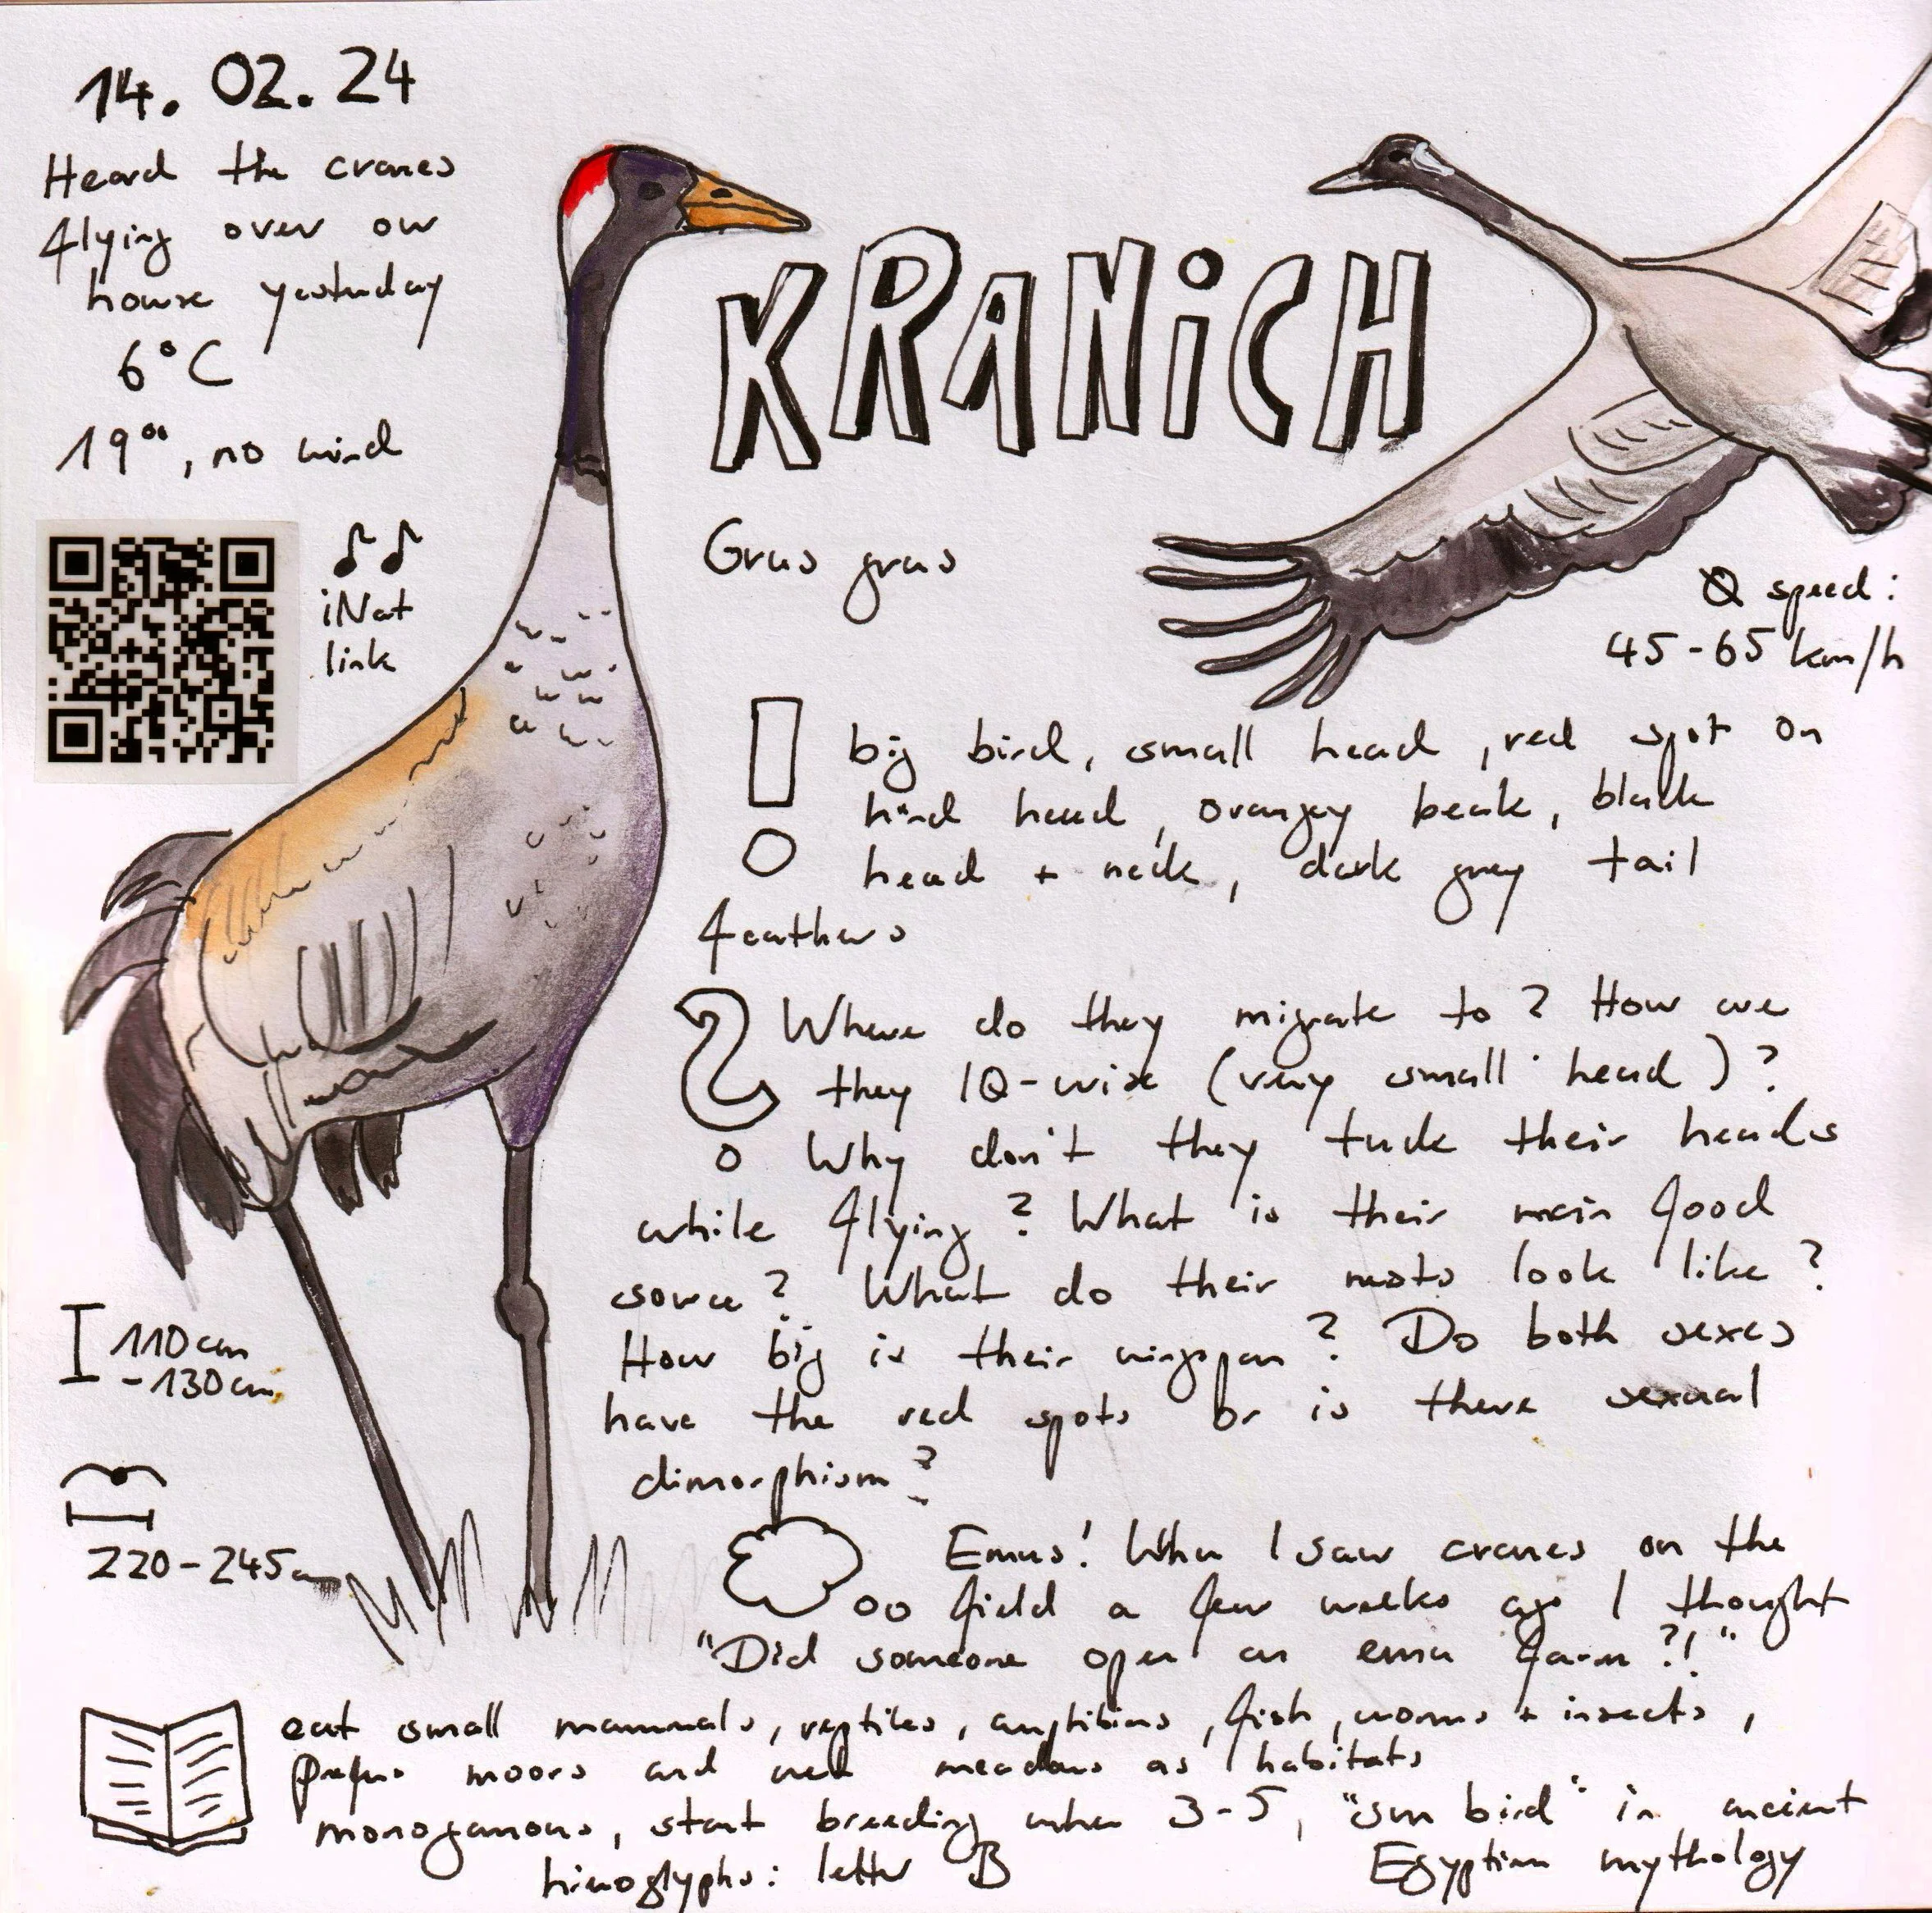 14. 02. 24
Heard the cranes
flying over our
house yesterday
6°C
19°°, no wind
iNat
link
KRANiCH
Grus grus
Ø speed:
45-65 km/h
big bird, small head, red spot on
hind head, orangey beak, black
head + neck, dark grey tail
feathers
Where do they migrate to? How are
they IQ-wise (very small head)?
Why don't they tuck their heads
while flying? What is their main food
source? What do their nests look like?
How big is their wingspan? Do both sexes
have the red spots or is there sexual
dimorphism?
110cm
-130cm
220-245cm
Emus! When I saw cranes on the
field a few weeks ago I thought
"Did someone open an emu farm?!"
eat small mammals, reptiles, amphibians, fish, worms + insects,
prefer moors and wet meadows as habitats
monogamous, start breeding when 3-5, "sun bird" in ancient
Egyptian mythology
hieroglyphs: letter B